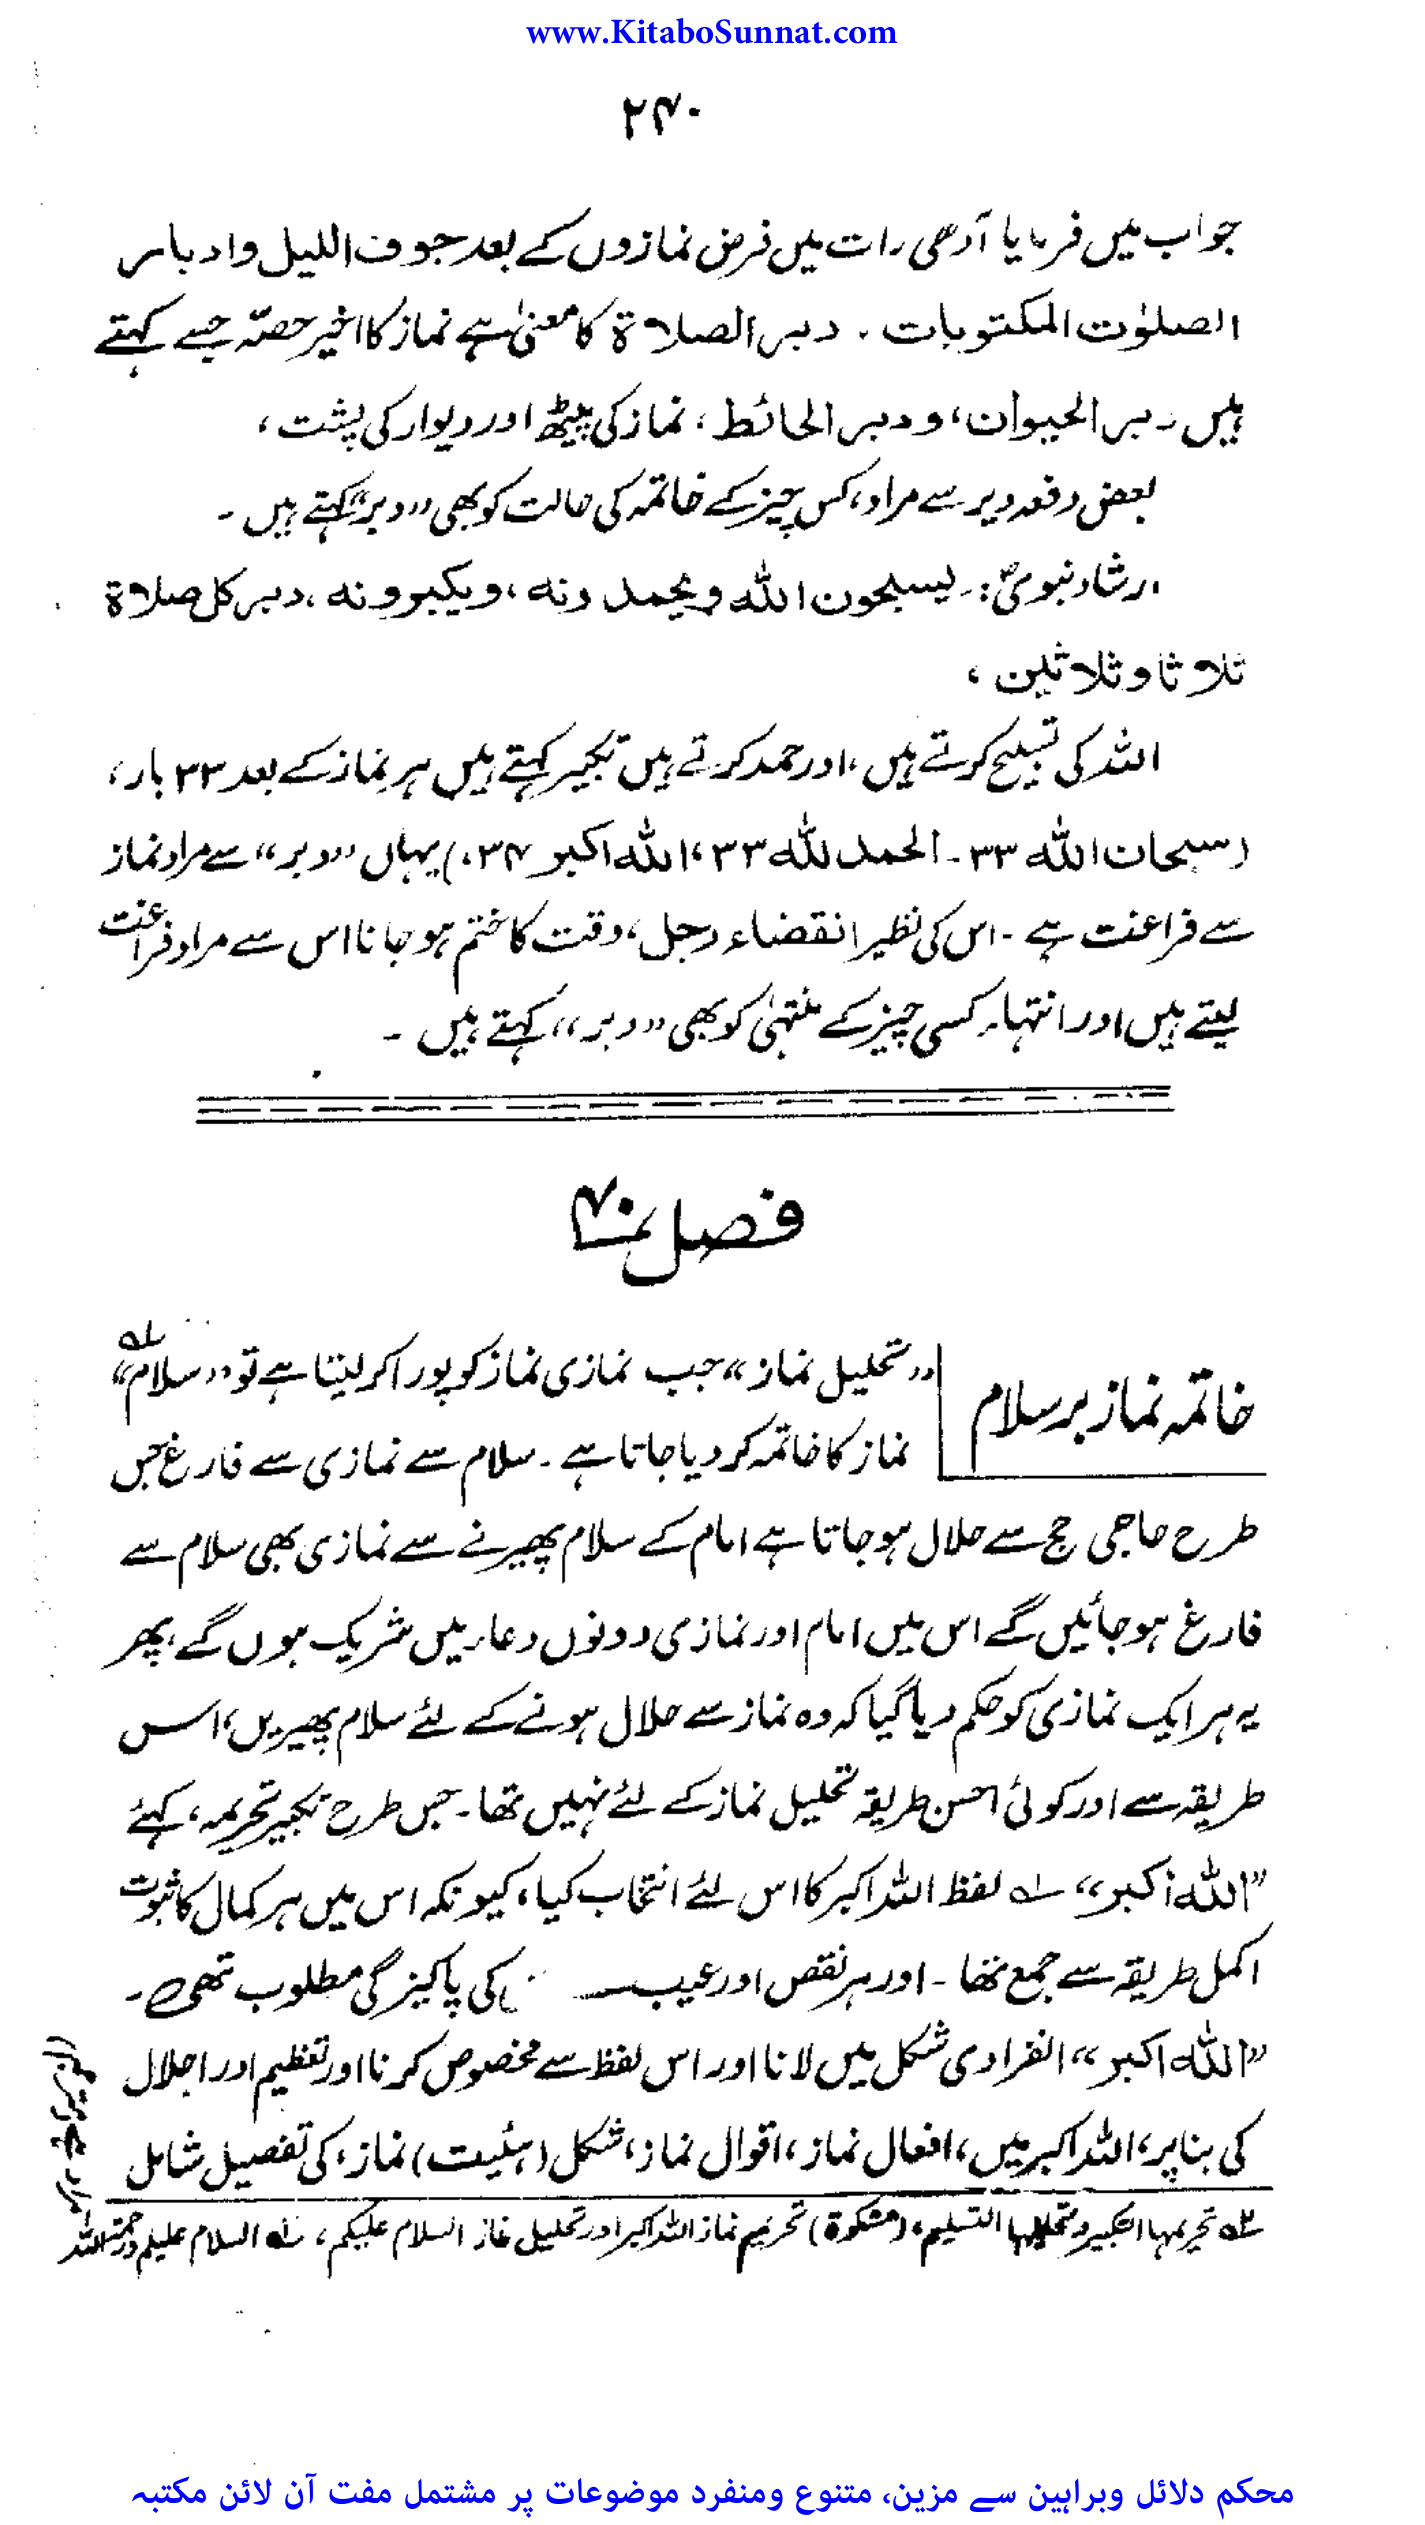 www.KitaboSunnat.com
۲۴۰
جواب میں فرمایا آدھی رات میں فرض نمازوں کے بعد جوف اللیل وادبار
الصلوٰت المکتوبات ۔ دبر الصلاۃ کا معنیٰ ہے نماز کا اخیر حصّہ جسے کہتے
ہیں دبر الحیوان، ودبر الحائط، نماز کی پیٹھ اور دیوار کی پشت،
بعض دفعہ دبر سے مراد، کس چیز کے خاتمہ کی حالت کو بھی ”دبر“ کہتے ہیں ۔
ارشاد نبویؐ:۔ یسبحون اللہ ویحمدونہ، ویکبرونہ، دبر کل صلاۃ
ثلاثا وثلاثین،
اللہ کی تسبیح کرتے ہیں، اور حمد کرتے ہیں تکبیر کہتے ہیں ہر نماز کے بعد ۳۳ بار،
(سبحان اللہ ۳۳ ۔ الحمد للہ ۳۳، اللہ اکبر ۳۴،) یہاں ”دبر“ سے مراد نماز
سے فراغت ہے ۔ اس کی نظیر انقضاء رجل، وقت کا ختم ہو جانا اس سے مراد فراغت
لیتے ہیں اور انتہاء کسی چیز کے منتہیٰ کو بھی ”دبر“ کہتے ہیں ۔
فصل نمبر ۴۰
خاتمہ نماز بر سلام
”تحلیل نماز“ جب نمازی نماز کو پورا کر لیتا ہے تو ”سلام“ ؎۱
نماز کا خاتمہ کر دیا جاتا ہے ۔ سلام سے نمازی سے فارغ جس
طرح حاجی حج سے حلال ہو جاتا ہے امام کے سلام پھیرنے سے نمازی بھی سلام سے
فارغ ہو جائیں گے اس میں امام اور نمازی دونوں دعاء میں شریک ہوں گے، پھر
یہ ہر ایک نمازی کو حکم دیا گیا کہ وہ نماز سے حلال ہونے کے لئے سلام پھیریں، اس
طریقہ سے اور کوئی احسن طریقہ تحلیل نماز کے لئے نہیں تھا ۔ جس طرح تکبیر تحریمہ، کہئے
”اللہ اکبر“ ؎۱ لفظ اللہ اکبر کا اس لئے انتخاب کیا، کیونکہ اس میں ہر کمال کا ثبوت
اکمل طریقہ سے جمع تھا ۔ اور ہر نقص اور عیب کی پاکیزگی مطلوب تھی ۔
”اللہ اکبر“ انفرادی شکل میں لانا اور اس لفظ سے مخصوص کرنا اور تعظیم اور اجلال
کی بنا پر، اللہ اکبر میں، افعال نماز، اقوال نماز، شکل (ہئیت) نماز، کی تفصیل شامل
؎۲ تحریمہا التکبیر وتحلیلہا التسلیم، (مشکوۃ) تحریم نماز اللہ اکبر اور تحلیل نماز السلام علیکم، ؎۱ السلام علیکم ورحمۃ اللہ
مراد ہے مترجم)
محکم دلائل وبراہین سے مزین، متنوع ومنفرد موضوعات پر مشتمل مفت آن لائن مکتبہ